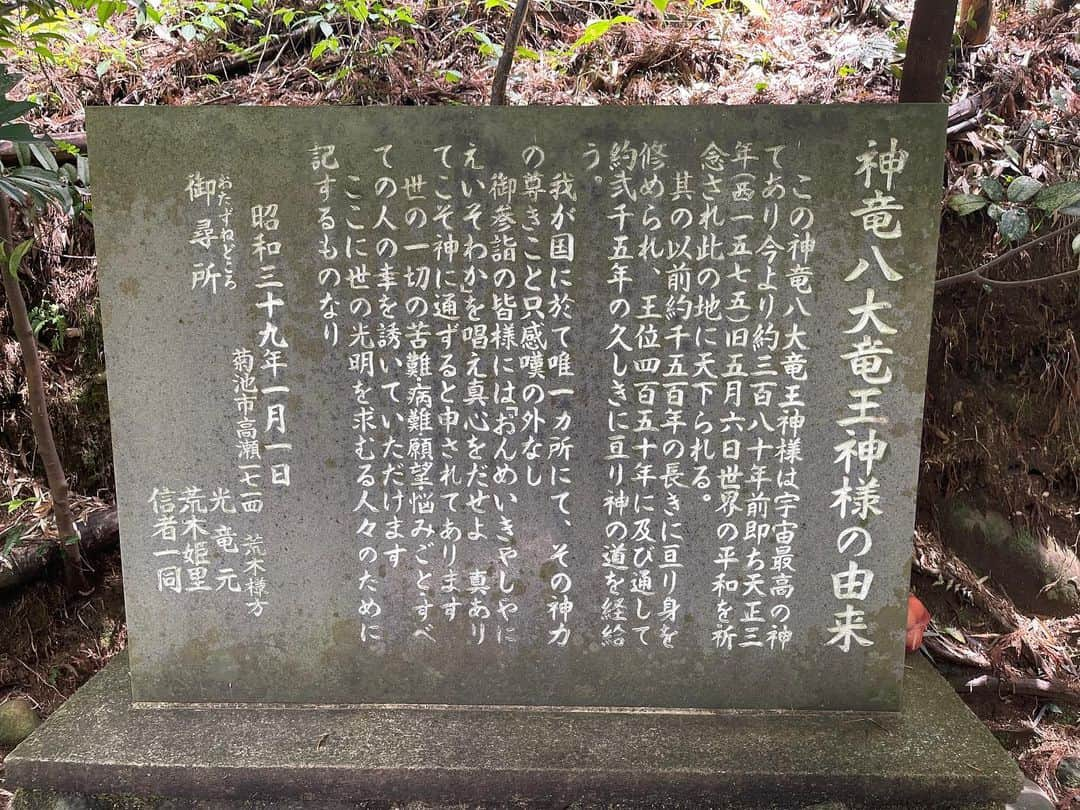 神竜八大竜王神様の由来
この神竜八大竜王神様は宇宙最高の神
であり今より約三百八十年前即ち天正三
年(西一五七五)旧五月六日世界の平和を祈
念され此の地に天下られる。
其の以前約千五百年の長きに亘り身を
修められ、王位四百五十年に及び通して
約弐千五年の久しきに亘り神の道を経給
う。
我が国に於て唯一カ所にて、その神力
の尊きこと只感嘆の外なし
御参詣の皆様には「おんめいきやしやに
えいそわか」を唱え真心をだせよ 真あり
てこそ神に通ずると申されてあります
世の一切の苦難・病難願望悩みごとすべ
ての人の幸を誘いていただけます
ここに世の光明を求むる人々のために
記するものなり
昭和三十九年一月一日
おたずねどころ
御尋所
菊池市高瀬一七一四 荒木様方
光竜元
荒木姫里
信者一同